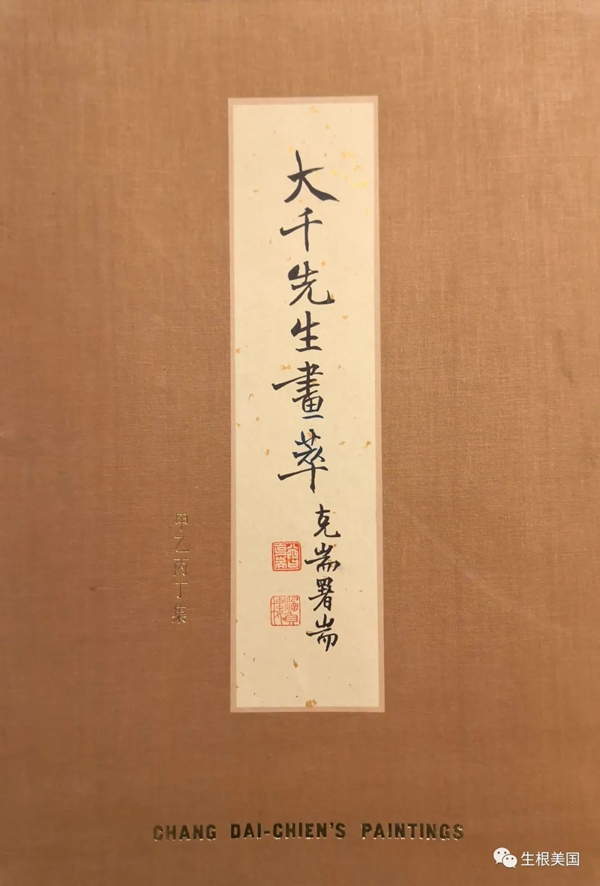 大千先生畫萃
克耑署耑
甲乙丙丁集
CHANG DAI-CHIEN'S PAINTINGS
生根美国